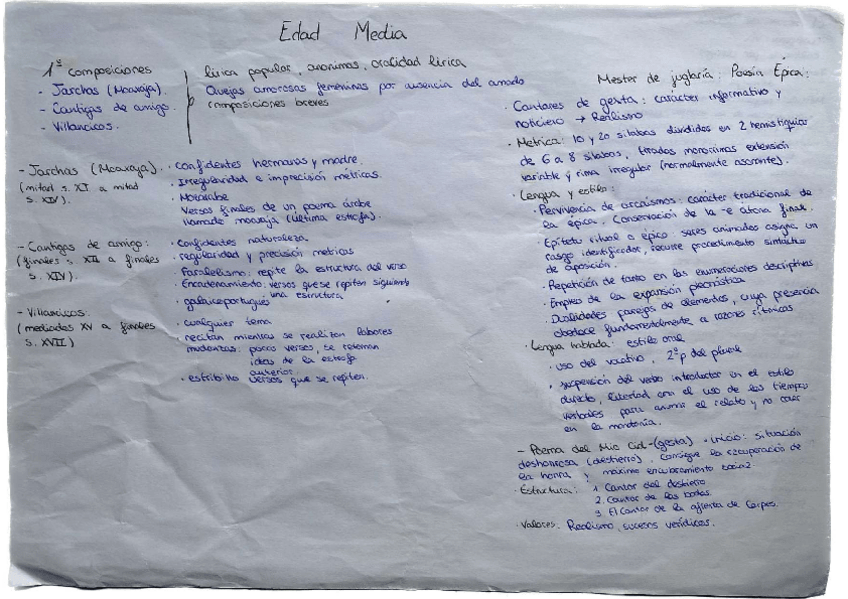 Edad Media
1ª composiciones
- Jarchas (Moaxaja).
- Cantigas de amigo.
- Villancicos.
lírica popular, anonimas, oralidad lírica
Quejas amorosas femeninas por ausencia del amado
composiciones breves
- Jarchas (Moaxaja).
(mitad s. XI a mitad
s. XIV).
· confidentes hermanas y madre.
· Irregularidad e imprecisión métricas.
· Mozarabe
Versos finales de un poema árabe
llamado moaxaja (última estrofa).
- Cantigas de amigo:
(finales s. XII a finales
s. XIV).
· Confidentes naturaleza.
· regularidad y precisión metricas
· Paralelismo: repite la estructura del verso
· Encadenamiento: versos que se repiten siguiendo
una estructura
· galaicoportugués
- Villancicos.
(mediados XV a finales
s. XVII)
· cualquier tema
recitan mientras se realizan labores
mudanzas: pocos versos, se retoman
ideas de la estrofa
anterior.
· estribillo versos que se repiten.
Mester de juglaría: Poesía Épica:
· Cantares de gesta: carácter informativo y
noticiero → Realismo
· Metrica: 10 y 20 silabas divididos en 2 hemistiquios
de 6 a 8 silabas, tiradas monorrimas extensión
variable y rima irregular (normalmente asonante).
· Lengua y estilo:
· Pervivencia de arcaismos: carácter tradicional de
la épica. Conservación de la -e atona final.
· Epíteto ritual o épico: seres animados asigna un
rasgo identificador, recurre procedimiento sintáctico
de aposición.
· Repetición de tanto en las enumeraciones descriptivas
· Empleo de la expansión pleonástica
· Dualidades parejas de elementos, cuya presencia
obedece fundamentalmente a razones rítmicas
· Lengua hablada: estilo oral
· uso del vocativo, 2ª p del plural
· suspensión del verbo introductor en el estilo
directo, libertad con el uso de los tiempos
verbales para animar el relato y no caer
en la monotonía.
- Poema del Mio Cid -(gesta) · inicio: situación
deshonrosa (destierro). Consigue la recuperación de
la honra y máximo encumbramiento social.
· Estructura: 1 Cantar del destierro
2. Cantar de las bodas.
3. El Cantar de la afrenta de Corpes.
· Valores: Realismo, sucesos verídicos.